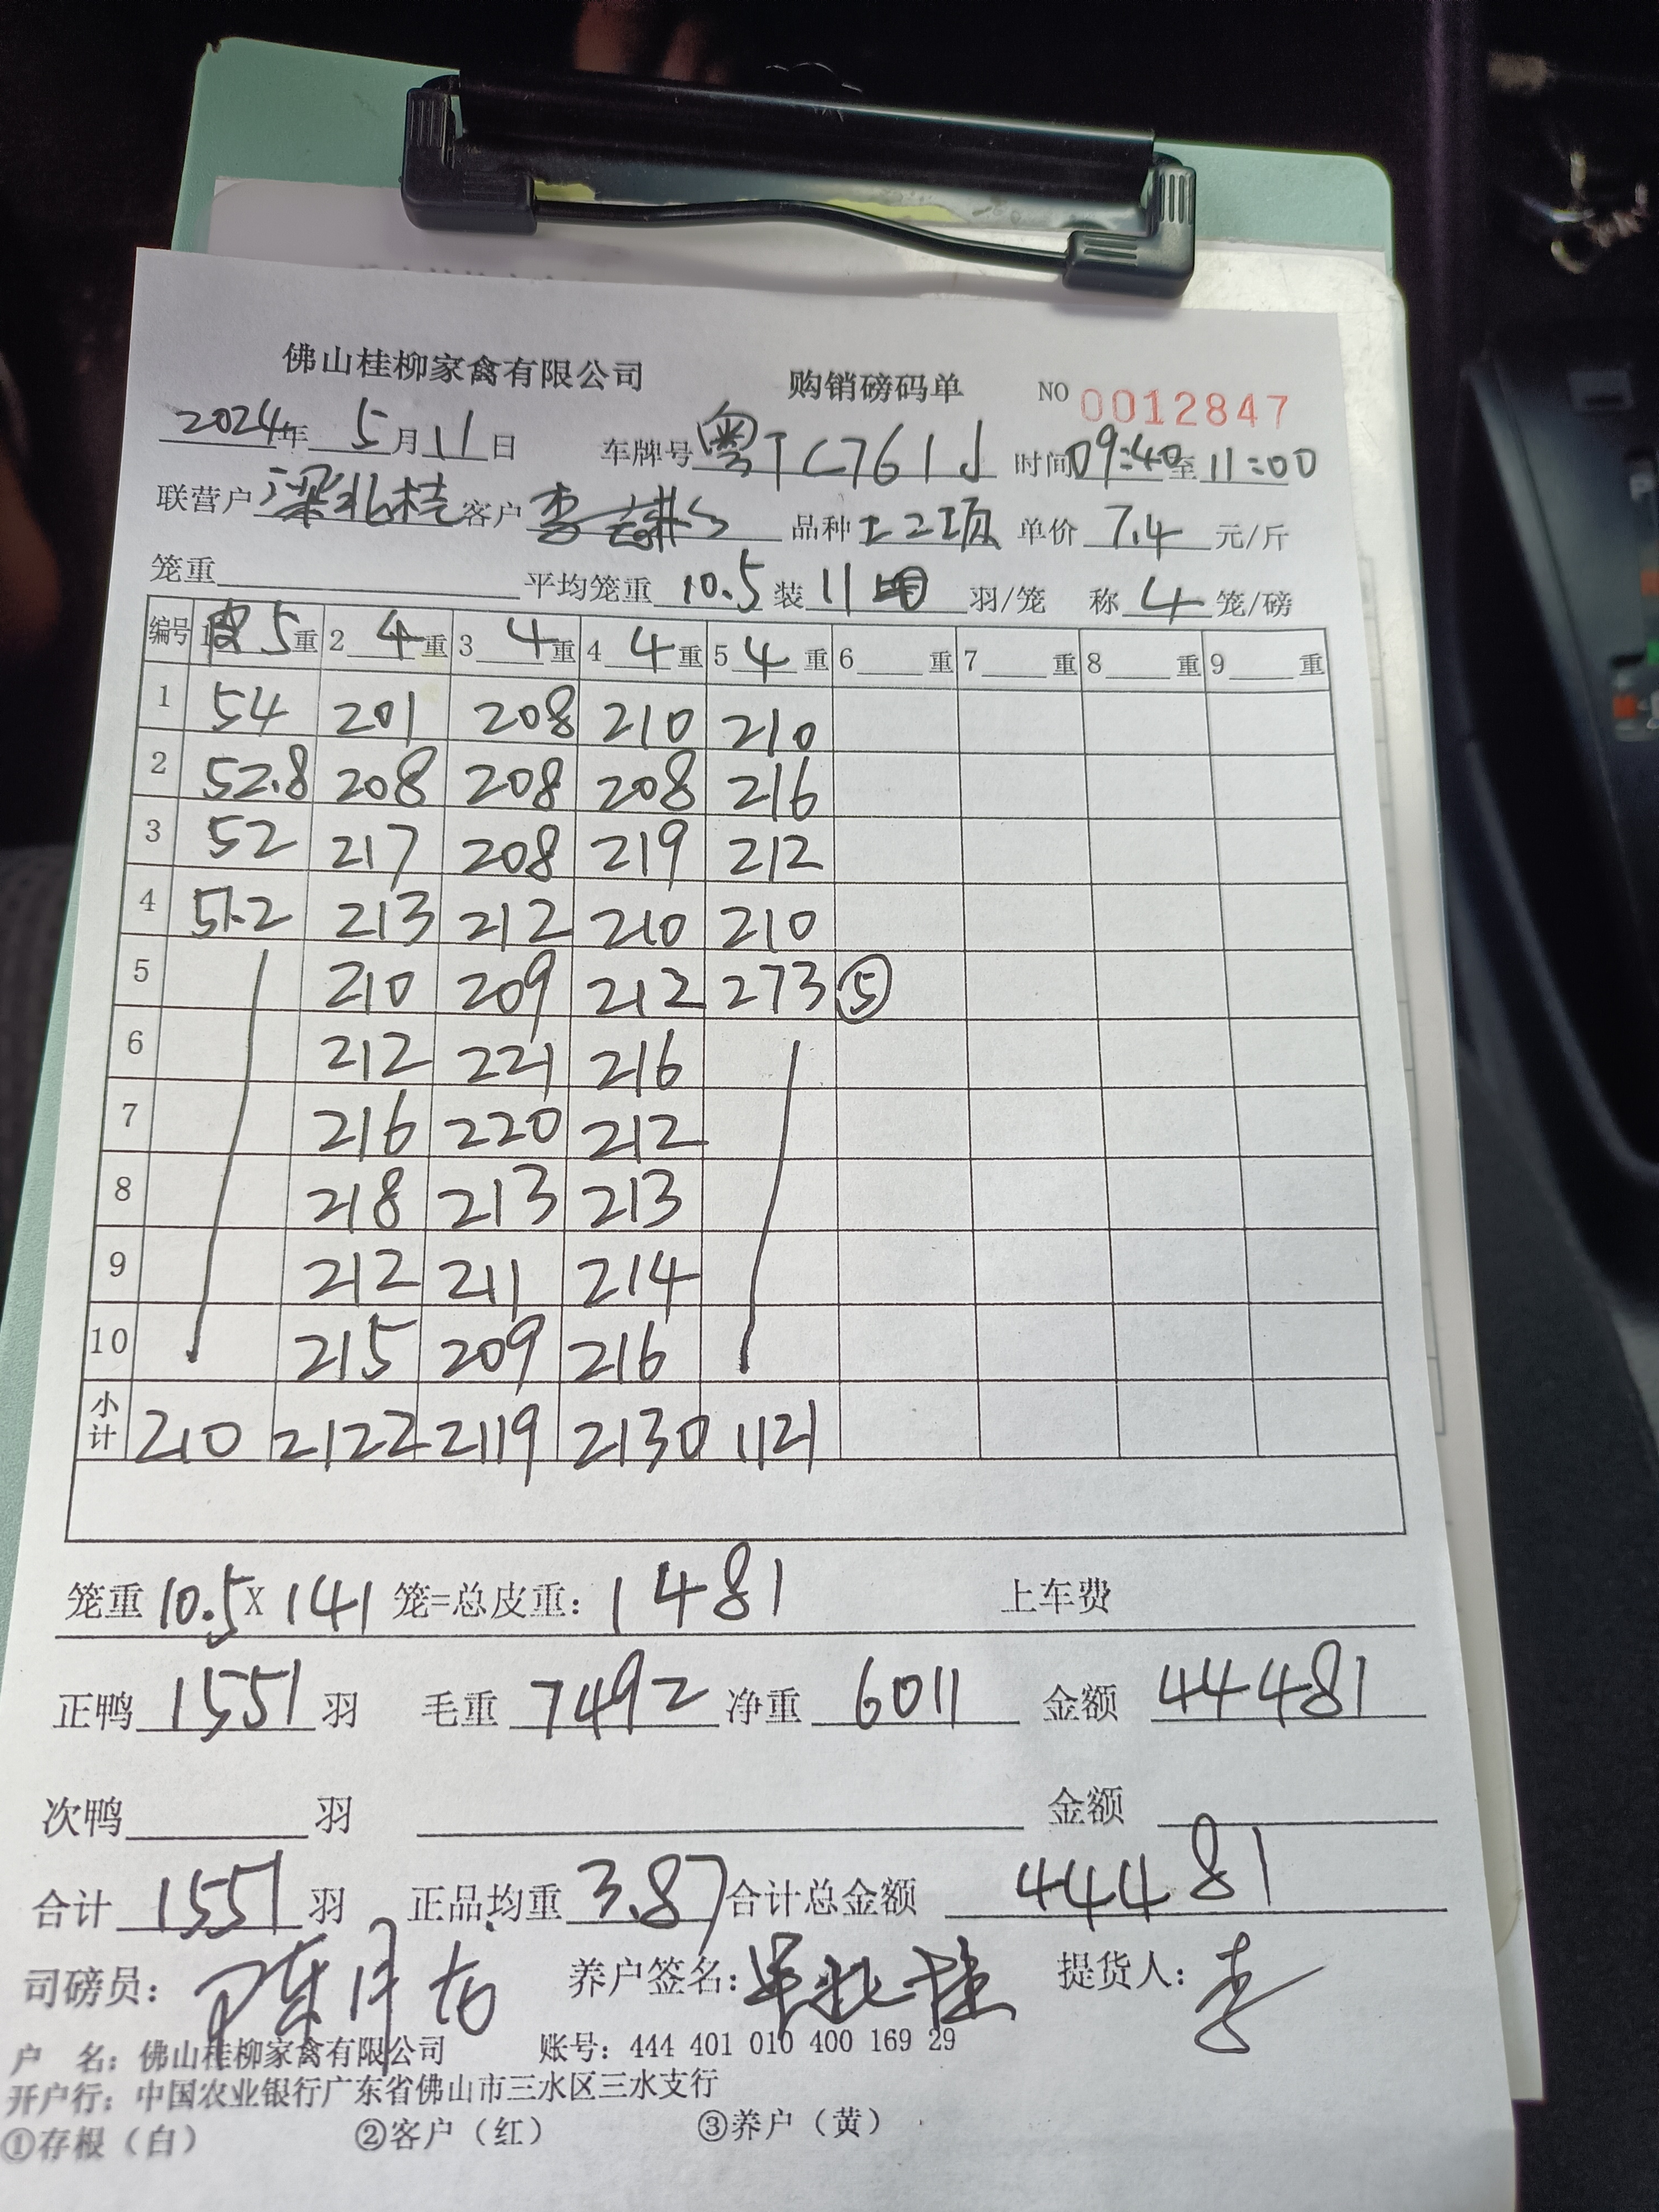 佛山桂柳家禽有限公司 购销磅码单 NO 0012847
2024年 5月11日 车牌号 粤TC761J 时间09:40至11:00
联营户 梁北桂 客户 李 品种 单价 7.4 元/斤
笼重 平均笼重 10.5 装 11 羽/笼 称 4 笼/磅
编号 1皮5重 2 4重 3 4重 4 4重 5 4重 6 重 7 重 8 重 9 重
1 54 201 208 210 210
2 52.8 208 208 208 216
3 52 217 208 219 212
4 51.2 213 212 210 210
5 210 209 212 273 ⑤
6 212 221 216
7 216 220 212
8 218 213 213
9 212 211 214
10 215 209 216
小计 210 2122 2119 2130 1121
笼重 10.5 X 141 笼=总皮重: 1481 上车费
正鸭 1551 羽 毛重 7492 净重 6011 金额 44481
次鸭 羽 金额
合计 1551 羽 正品均重 3.87 合计总金额 44481
司磅员: 陈月 养户签名: 北桂 提货人: 李
户 名: 佛山桂柳家禽有限公司 账号: 444 401 010 400 169 29
开户行: 中国农业银行广东省佛山市三水区三水支行
①存根（白） ②客户（红） ③养户（黄）